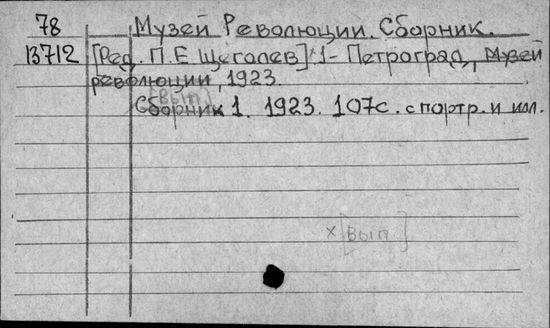 78 Музей Революции. Сборник.
13712 [Ред. П.Е Щеголев] 1- Петроград, Музей
революции, 1923.
[Вып]
Сборник 1. 1923. 107с. с портр. и илл.
x [Вып ]